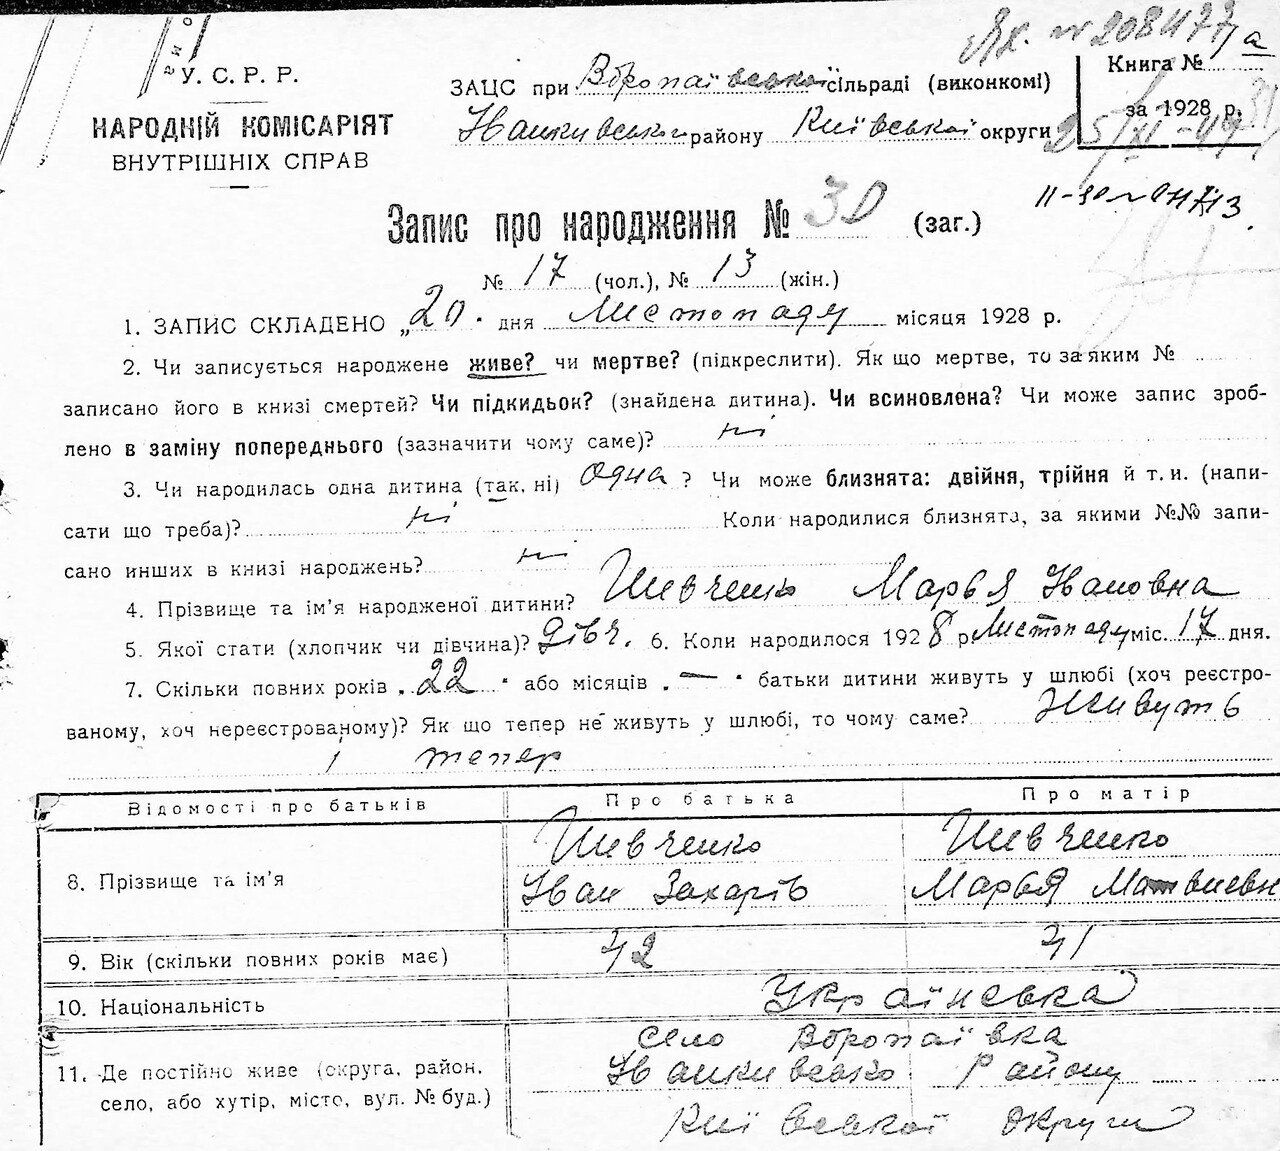 Ях. № 208477
У. С. Р. Р.
НАРОДНІЙ КОМІСАРІЯТ
ВНУТРІШНІХ СПРАВ
ЗАЦС при Воропаївської сільраді (виконкомі)
району Київської округи
Книга № 1а
за 1928 р.
25/XI-49
Запис про народження № 30 (заг.)
№ 17 (чол.), № 13 (жін.)
1. ЗАПИС СКЛАДЕНО „20" дня Листопаду місяця 1928 р.
2. Чи записується народжене живе? чи мертве? (підкреслити). Як що мертве, то за яким №
записано його в книзі смертей? Чи підкидьок? (знайдена дитина). Чи всиновлена? Чи може запис зроб-
лено в заміну попереднього (зазначити чому саме)? ні
3. Чи народилась одна дитина (так, ні) одна ? Чи може близнята: двійня, трійня й т. и. (напи-
сати що треба)? ні Коли народилися близнята, за якими №№ запи-
сано инших в книзі народжень? ні
4. Прізвище та ім'я народженої дитини? Шевченко Марья Івановна
5. Якої стати (хлопчик чи дівчина)? дівч. 6. Коли народилося 1928 р Листопаду міс. 17 дня.
7. Скільки повних років „22" або місяців „—" батьки дитини живуть у шлюбі (хоч реєстро-
ваному, хоч нереєстрованому)? Як що тепер не живуть у шлюбі, то чому саме? Живуть
і тепер
Відомості про батьків Про батька Про матір
8. Прізвище та ім'я
Шевченко
Іван Захарів
Шевченко
Марья Матвиевн
9. Вік (скільки повних років має) 42 41
10. Національність Українська
11. Де постійно живе (округа, район,
село, або хутір, місто, вул. № буд.)
село Воропаївка
Району
Київської округи